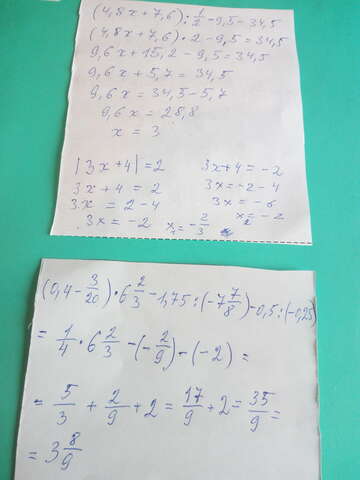 (4,8x+7,6):1/2-9,5=34,5
(4,8x+7,6)·2-9,5=34,5
9,6x+15,2-9,5=34,5
9,6x+5,7=34,5
9,6x=34,5-5,7
9,6x=28,8
x=3
|3x+4|=2
3x+4=2
3x=2-4
3x=-2 x₁=-2/3
3x+4=-2
3x=-2-4
3x=-6
x₂=-2
(0,4-3/20)·6 2/3-1,75:(-7 7/8)-0,5:(-0,25)
=1/4·6 2/3-(-2/9)-(-2)=
=5/3+2/9+2=17/9+2=35/9=
=3 8/9